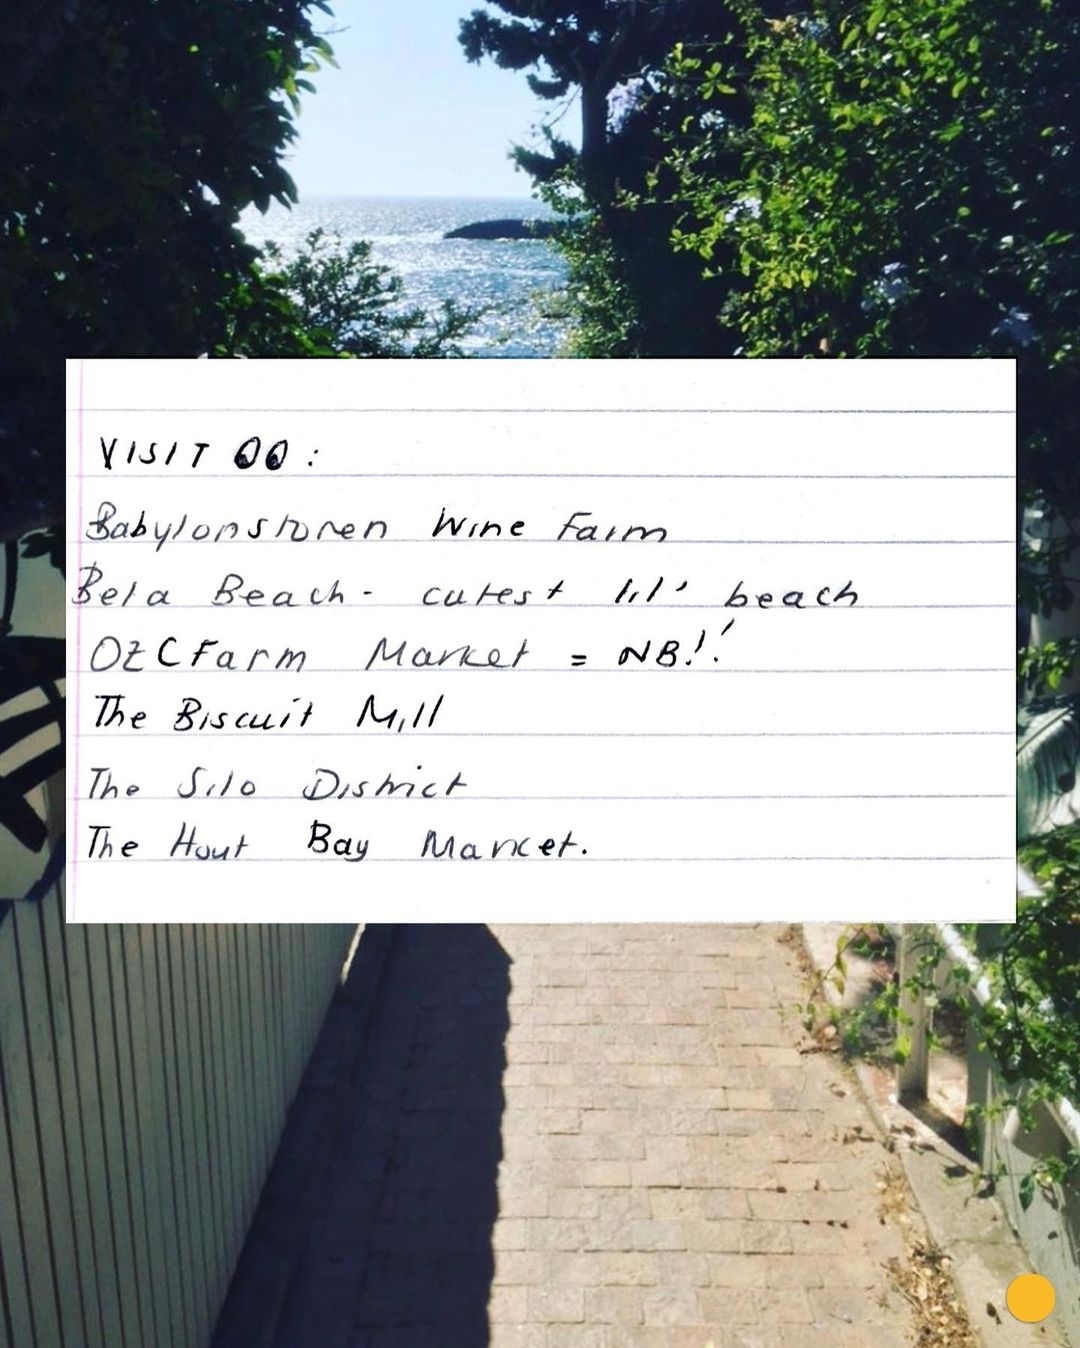 VISIT OO:
Babylonstoren Wine Farm
Beta Beach - cutest lil' beach
OZCFarm Market = NB!!
The Biscuit Mill
The Silo District
The Hout Bay Market.